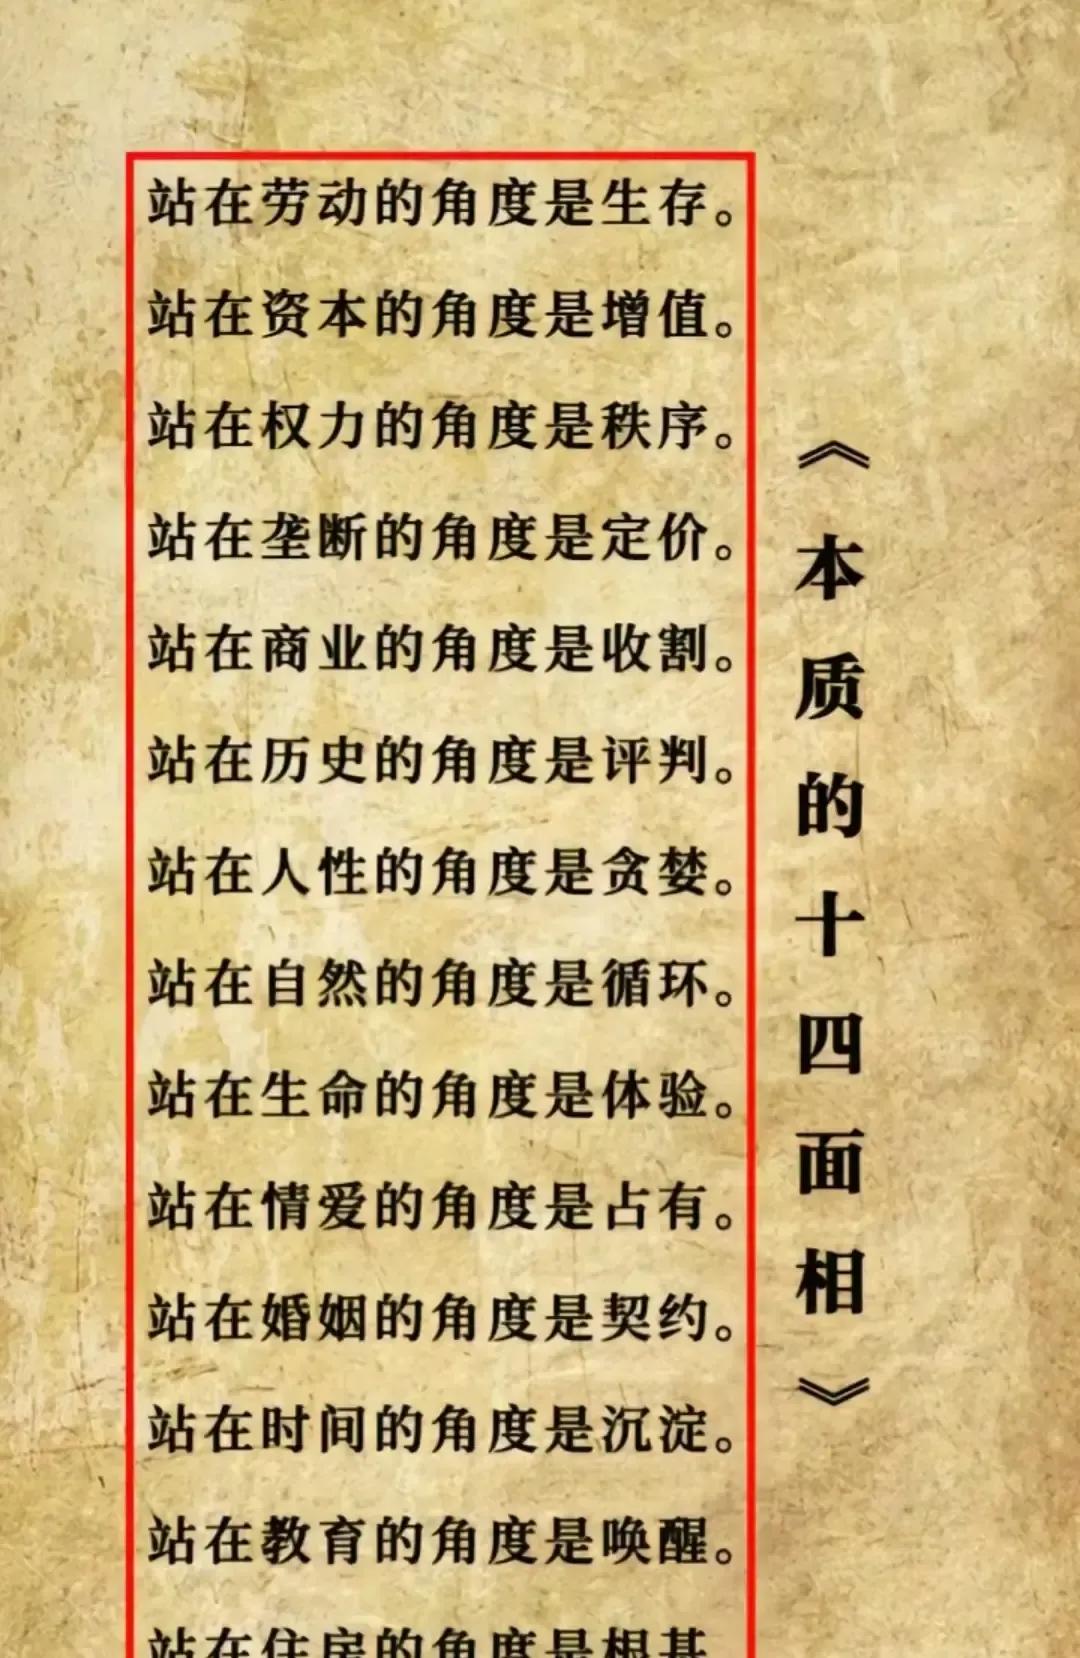 《本质的十四面相》
站在劳动的角度是生存。
站在资本的角度是增值。
站在权力的角度是秩序。
站在垄断的角度是定价。
站在商业的角度是收割。
站在历史的角度是评判。
站在人性的角度是贪婪。
站在自然的角度是循环。
站在生命的角度是体验。
站在情爱的角度是占有。
站在婚姻的角度是契约。
站在时间的角度是沉淀。
站在教育的角度是唤醒。
站在住房的角度是根基